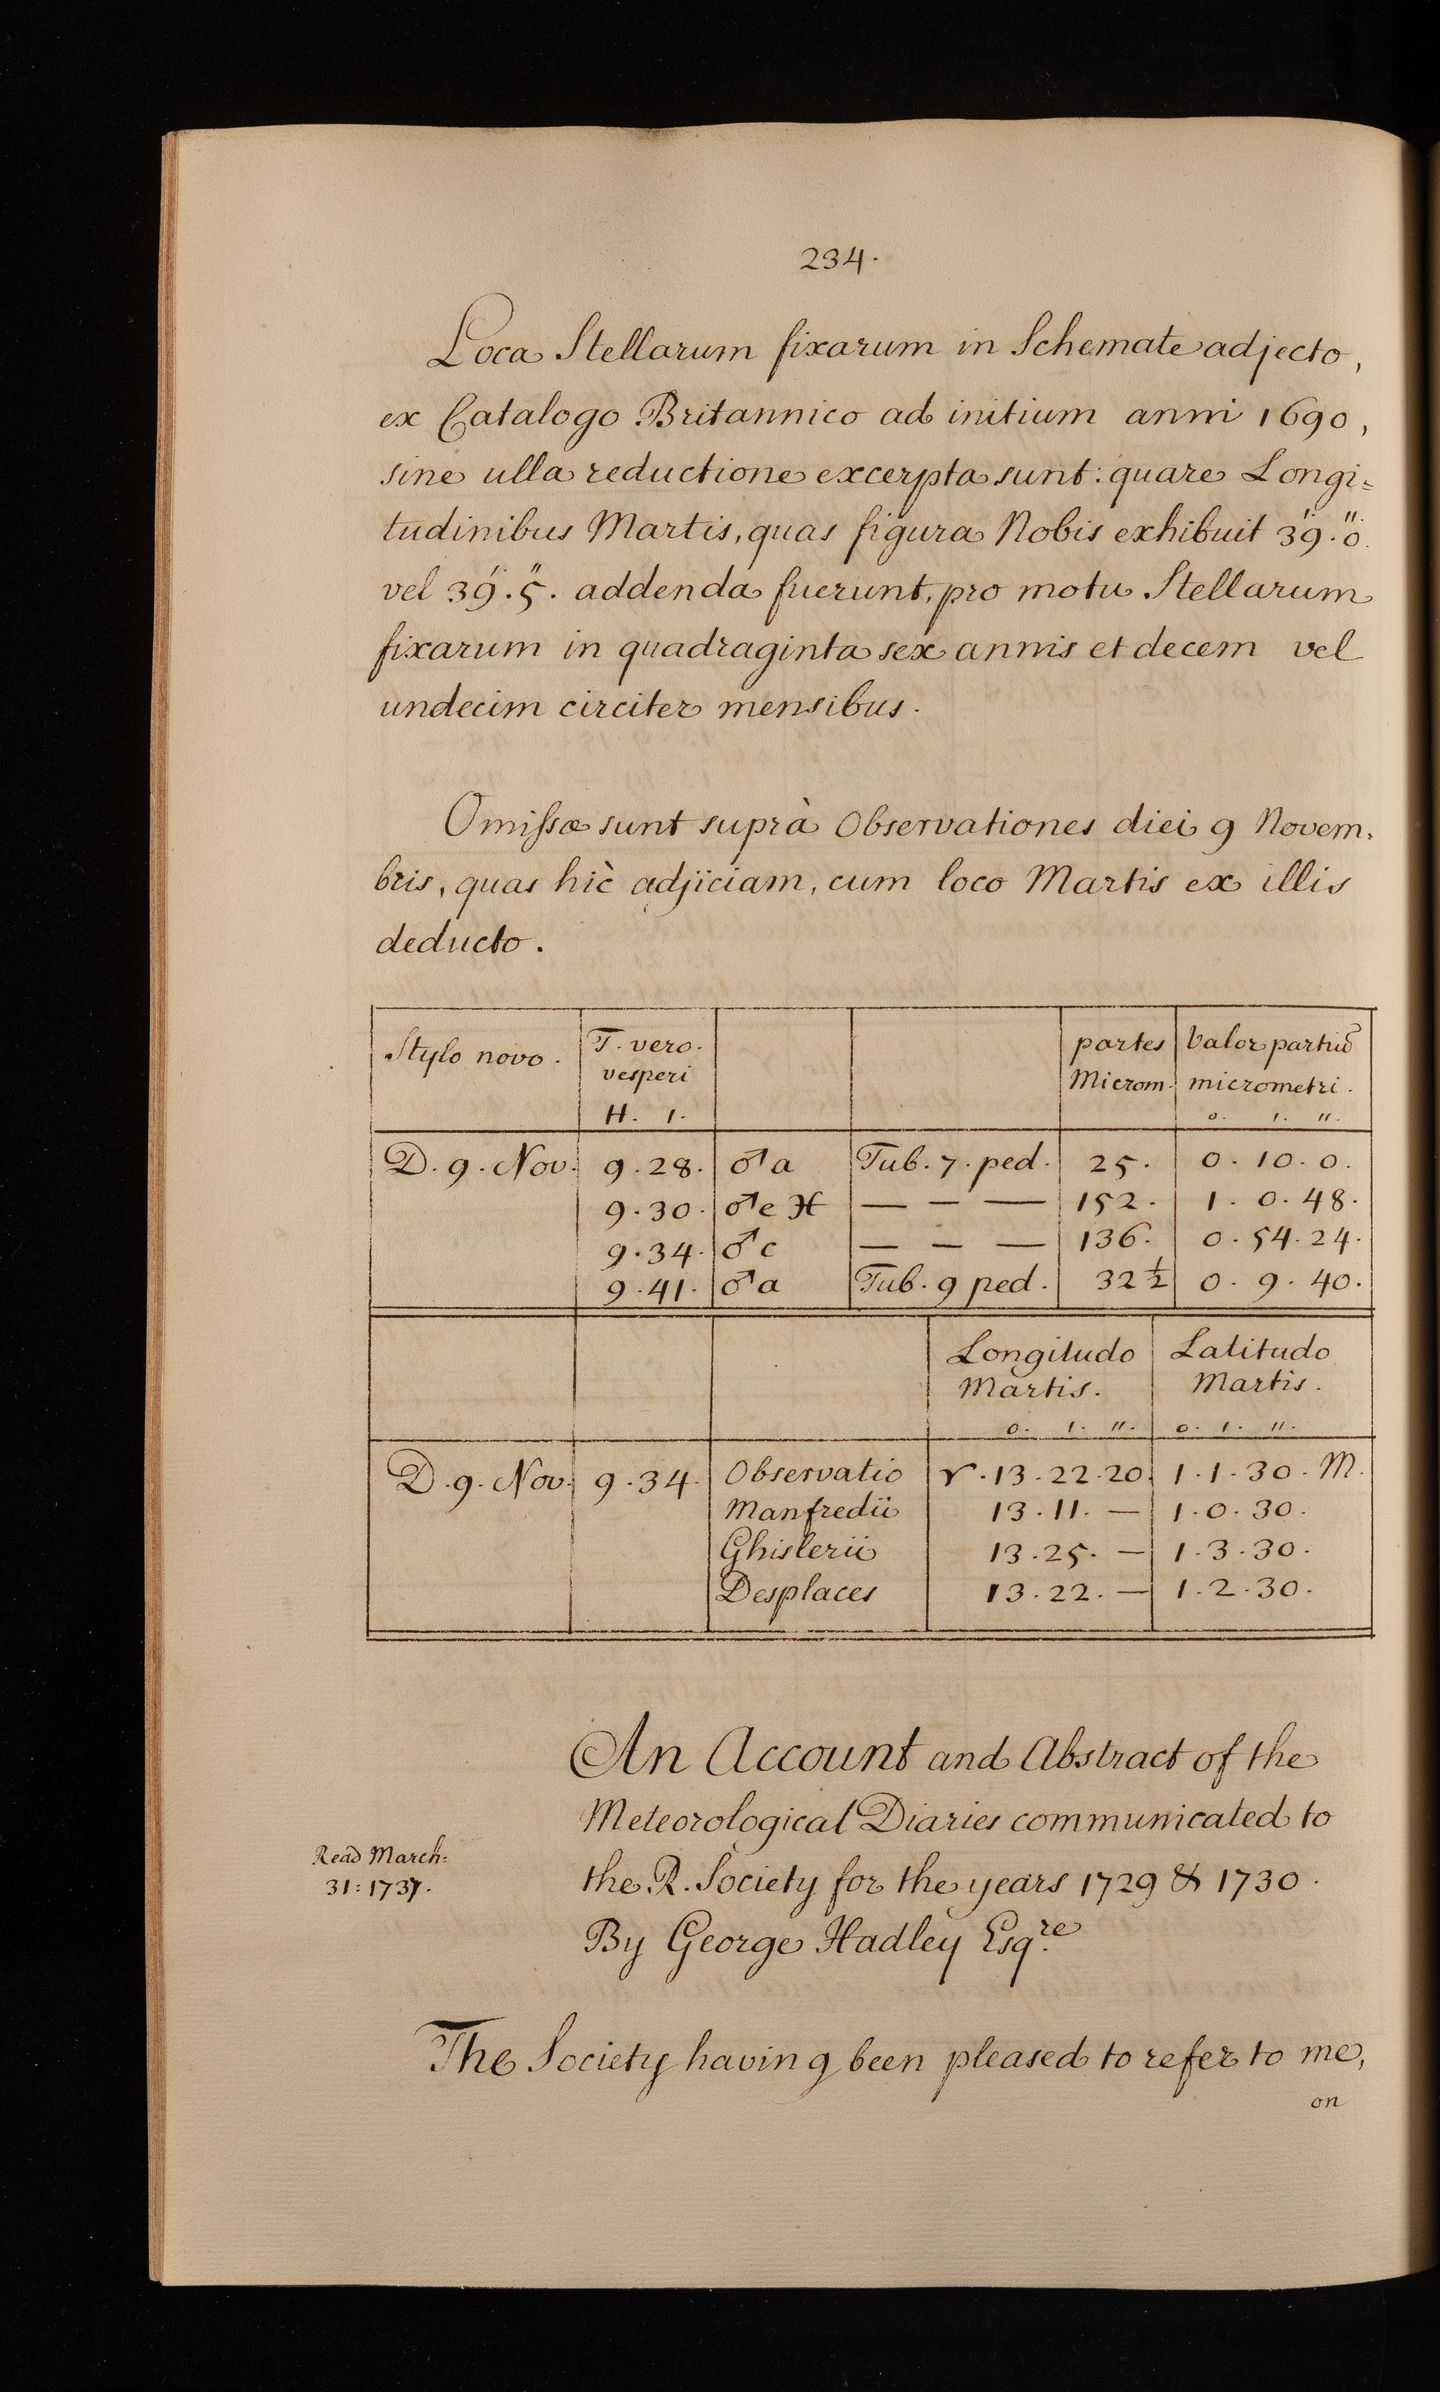 234.
Loca Stellarum fixarum in Schemate adjecto,
ex Catalogo Britannico ad initium anni 1690,
sine ulla reductione excerpta sunt: quare Longi=
tudinibus Martis, quas figura Nobis exhibuit 39'. 0''.
vel 39'. 5''. addenda fuerunt, pro motu Stellarum
fixarum in quadraginta sex annis et decem vel
undecim circiter mensibus.
Omissæ sunt suprà Observationes diei 9 Novem.
bris, quas hìc adjiciam, cum loco Martis ex illis
deducto.
Stylo novo. T. vero. partes Valor partiū
vesperi Microm. micrometri.
H. ı. o. ı. ıı.
D. 9. Nov. 9. 28. ♂ a Tub. 7. ped. 25. 0. 10. 0.
9. 30. ♂ e ♓ — — — 152. 1. 0. 48.
9. 34. ♂ c — — — 136. 0. 54. 24.
9. 41. ♂ a Tub. 9 ped. 32 ½ 0. 9. 40.
Longitudo Latitudo
Martis. Martis.
o. ı. ıı. o. ı. ıı.
D. 9. Nov. 9. 34. Observatio ♈. 13. 22. 20. 1. 1. 30. M.
Manfredii 13. 11. — 1. 0. 30.
Ghislerii 13. 25. — 1. 3. 30.
Desplaces 13. 22. — 1. 2. 30.
An Account and Abstract of the
Meteorological Diaries communicated to
Read March:
31: 1737.
the R. Society for the years 1729 & 1730.
By George Hadley Esqre.
The Society having been pleased to refer to me,
on